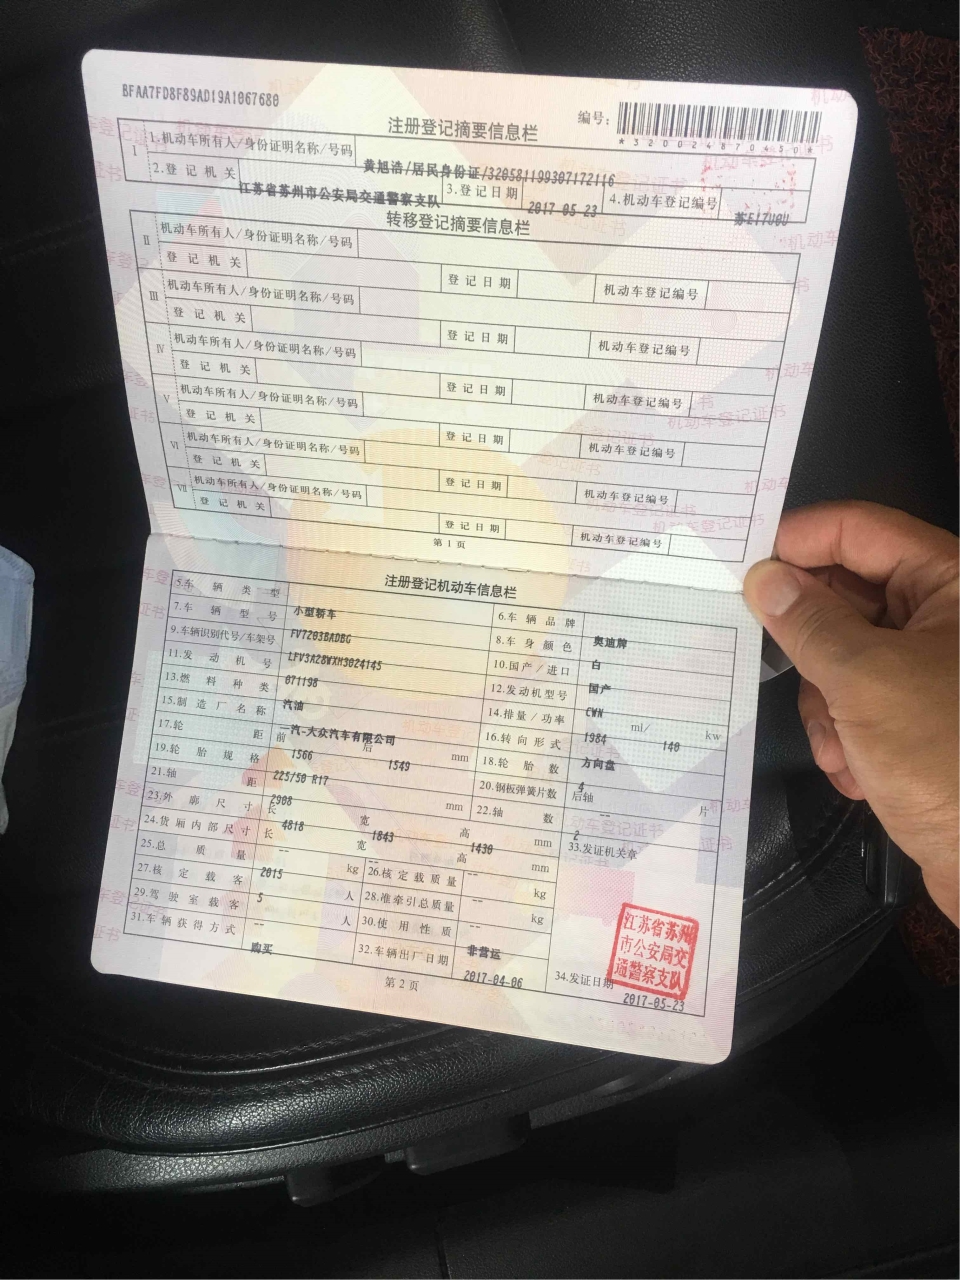 BFAA7FD8F89AD19A1067680
注册登记摘要信息栏
编号:
*320024870450*
I 1.机动车所有人/身份证明名称/号码 黄旭浩/居民身份证/320581199307172116
2.登记机关 江苏省苏州市公安局交通警察支队 3.登记日期 2017-05-23 4.机动车登记编号 苏E17U0U
转移登记摘要信息栏
II 机动车所有人/身份证明名称/号码
登记机关 登记日期 机动车登记编号
III 机动车所有人/身份证明名称/号码
登记机关 登记日期 机动车登记编号
IV 机动车所有人/身份证明名称/号码
登记机关 登记日期 机动车登记编号
V 机动车所有人/身份证明名称/号码
登记机关 登记日期 机动车登记编号
VI 机动车所有人/身份证明名称/号码
登记机关 登记日期 机动车登记编号
VII 机动车所有人/身份证明名称/号码
登记机关 登记日期 机动车登记编号
第1页
注册登记机动车信息栏
5.车辆类型 小型轿车 6.车辆品牌 奥迪牌
7.车辆型号 FV7203BADBG 8.车身颜色 白
9.车辆识别代号/车架号 LFV3A28WXH3024145 10.国产/进口 国产
11.发动机号 071198 12.发动机型号 CWN
13.燃料种类 汽油 14.排量/功率 1984 ml/ 140 kw
15.制造厂名称 一汽-大众汽车有限公司 16.转向形式 方向盘
17.轮距 前 1566 后 1549 mm 18.轮胎数 4
19.轮胎规格 225/50 R17 20.钢板弹簧片数 后轴 -- 片
21.轴距 2908 mm 22.轴数 2
23.外廓尺寸 长 4818 宽 1843 高 1430 mm 33.发证机关章
24.货厢内部尺寸 长 -- 宽 -- 高 -- mm
25.总质量 2015 kg 26.核定载质量 -- kg
27.核定载客 5 人 28.准牵引总质量 -- kg
29.驾驶室载客 -- 人 30.使用性质 非营运
31.车辆获得方式 购买 32.车辆出厂日期 2017-04-06 34.发证日期 2017-05-23
江苏省苏州
市公安局交
通警察支队
第2页